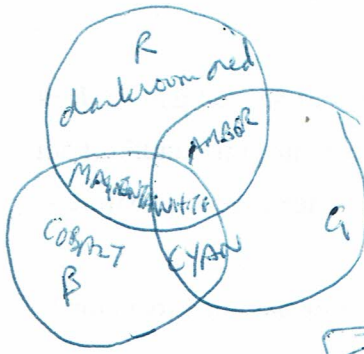 R
darkroom red
AMBER
MAGENTA
WHITE
COBALT
B
CYAN
G